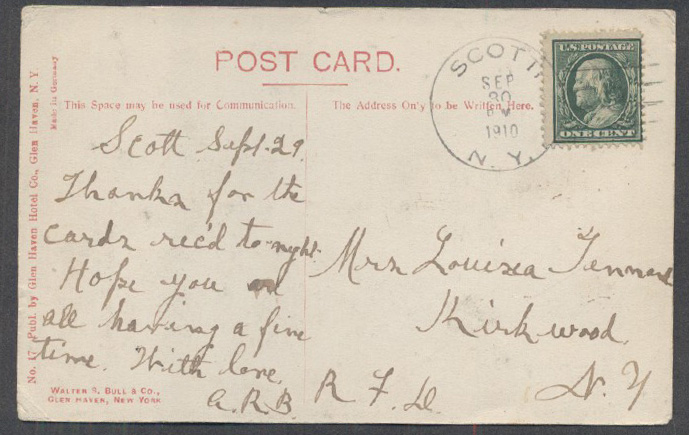 POST CARD.
This Space may be used for Communication.
The Address Only to be Written Here.
No. 17. Publ. by Glen Haven Hotel Co., Glen Haven, N. Y.
Made in Germany
SCOTT
SEP
30
1910
N. Y.
U.S. POSTAGE
ONE CENT
Scott Sept. 29.
Thanks for the
cards rec'd to-night.
Hope you are
all having a fine
time. With love,
A.R.B.
Mrs Louisa
Kirkwood
R. F. D. N. Y
WALTER S. BULL & CO.,
GLEN HAVEN, NEW YORK